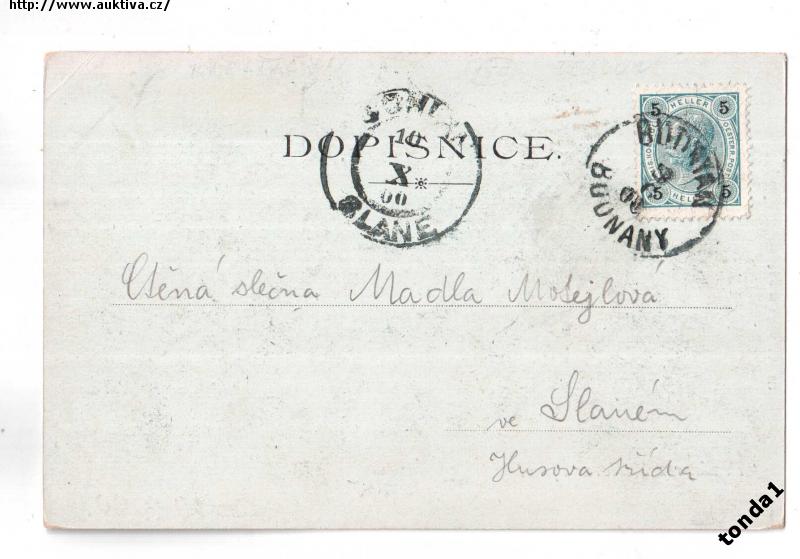 http://www.auktiva.cz/
DOPISNICE.
10
X
00
SLANÉ
5 HELLER 5
5 HELLER 5
BODŇANY
Ctěná slečna Madla Mošejlová
ve Slaném
Husova třída
tonda1